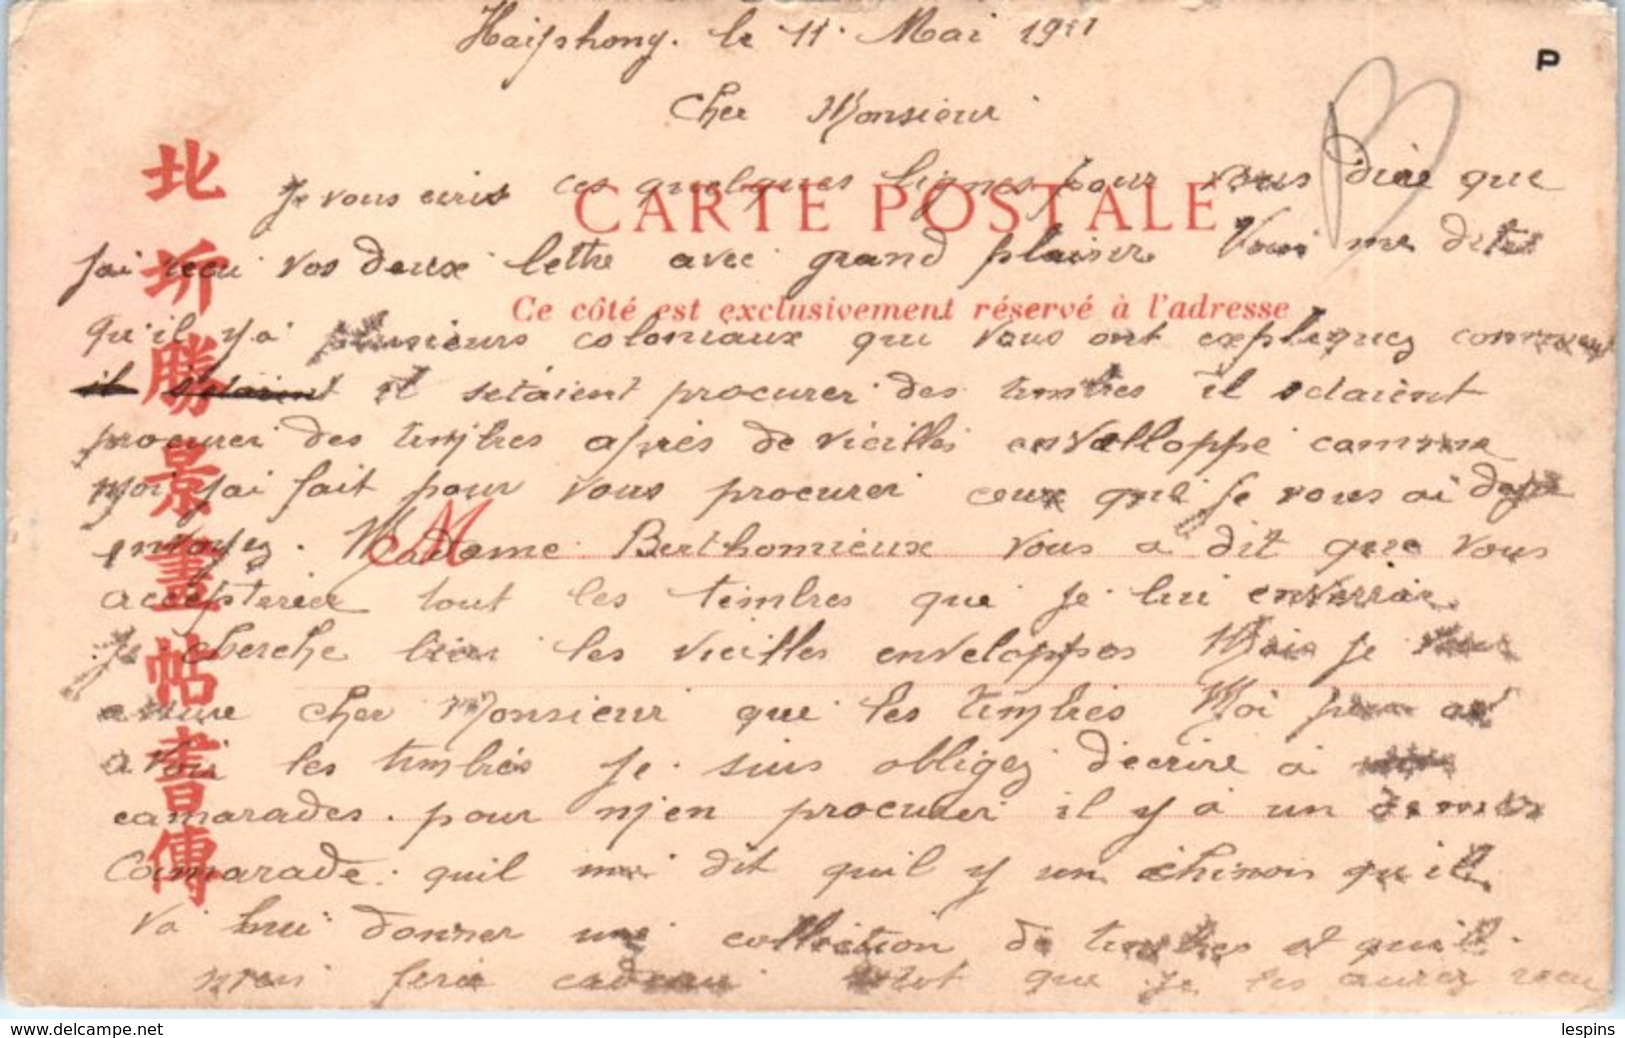 Haiphong. le 11. Mai 1911
P
Cher Monsieur
Je vous ecris ces quelques lignes pour vous dire que
CARTE POSTALE
Jai recu vos deux lettre avec grand plaisir Vous me dites
Ce côté est exclusivement réservé à l'adresse
qu'il ya plusieurs coloniaux qui vous ont expliquez comment
il setaient procurer des timbres il setaient
procurer des timbres apres de vieilles envelloppe comme
Moi Jai fait pour vous procurer ceux que Je vous ai deja
envoyez. Madame Berthomieux vous a dit que vous
M
accepterier tout les timbres que Je lui enverrai
Je cherche bien les vieilles enveloppes Mais Je vous
assure cher Monsieur que les timbres Moi pour
avoir les timbres Je suis obligez decrire a
camarades. pour m'en procurer il y a un de mes
Camarade. quil me dit quil y un chinois qu'il
va lui donner une collection de timbres et quil
men fera cadeau que Je les aurez recu
北圻勝景畫帖書傳
delcampe.net
lespins_